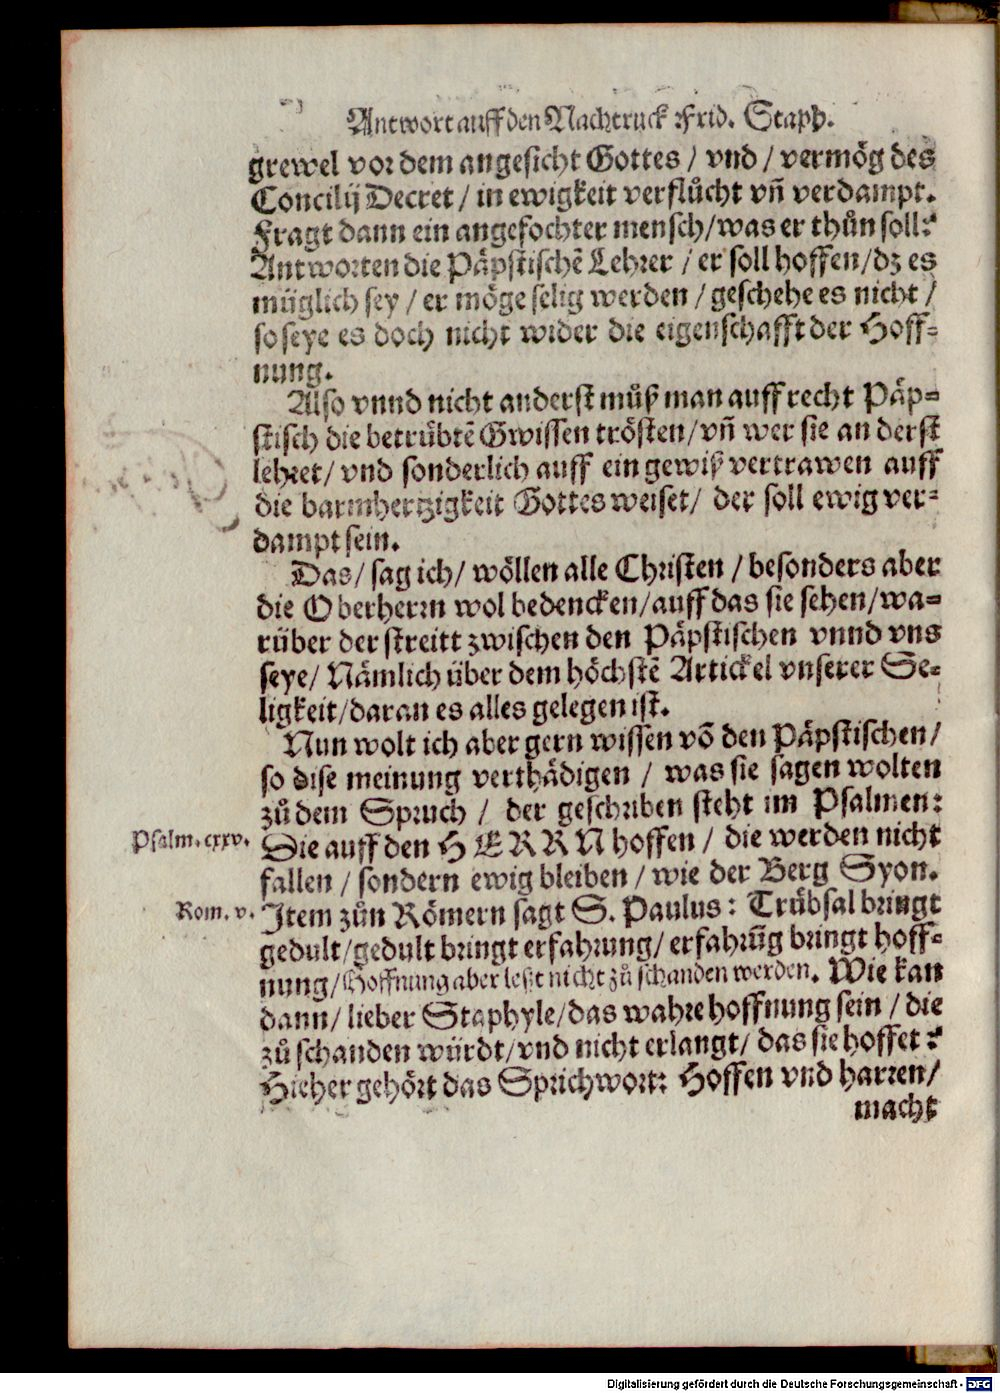 Antwort auff den Nachtruck Frid. Staph.
grewel vor dem angesicht Gottes / vnd / vermög des
Concilij Decret / in ewigkeit verflůcht vñ verdampt.
Fragt dann ein angefochter mensch/was er thůn soll?
Antworten die Päpstischẽ Lehrer / er soll hoffen/dz es
müglich sey / er möge selig werden / geschehe es nicht /
so seye es doch nicht wider die eigenschafft der Hoff=
nung.
Also vnnd nicht anderst můß man auff recht Päp=
stisch die betrübtẽ Gwissen trösten/vñ wer sie anderst
lehret/ vnd sonderlich auff ein gewiß vertrawen auff
die barmhertzigkeit Gottes weiset/ der soll ewig ver=
dampt sein.
Das/ sag ich/ wöllen alle Christen / besonders aber
die Oberherrn wol bedencken/auff das sie sehen/wa=
rüber der streitt zwischen den Päpstischen vnnd vns
seye/ Nämlich über dem höchstẽ Artickel vnserer Se=
ligkeit/daran es alles gelegen ist.
Nun wolt ich aber gern wissen võ den Päpstischen/
so dise meinung verthädigen / was sie sagen wolten
zů dem Spruch / der geschriben steht im Psalmen:
Psalm. cxxv. Die auff den HERRN hoffen / die werden nicht
fallen / sondern ewig bleiben / wie der Berg Syon.
Rom. v. Item zůn Römern sagt S. Paulus: Trübsal bringt
gedult/gedult bringt erfahrung/ erfahrũg bringt hoff=
nung/Hoffnung aber leßt nicht zů schanden werden. Wie kan
dann/ lieber Staphyle/das wahre hoffnung sein / die
zů schanden würdt/vnd nicht erlangt/ das sie hoffet?
Hieher gehört das Sprichwort: Hoffen vnd harren/
macht
Digitalisierung gefördert durch die Deutsche Forschungsgemeinschaft - DFG